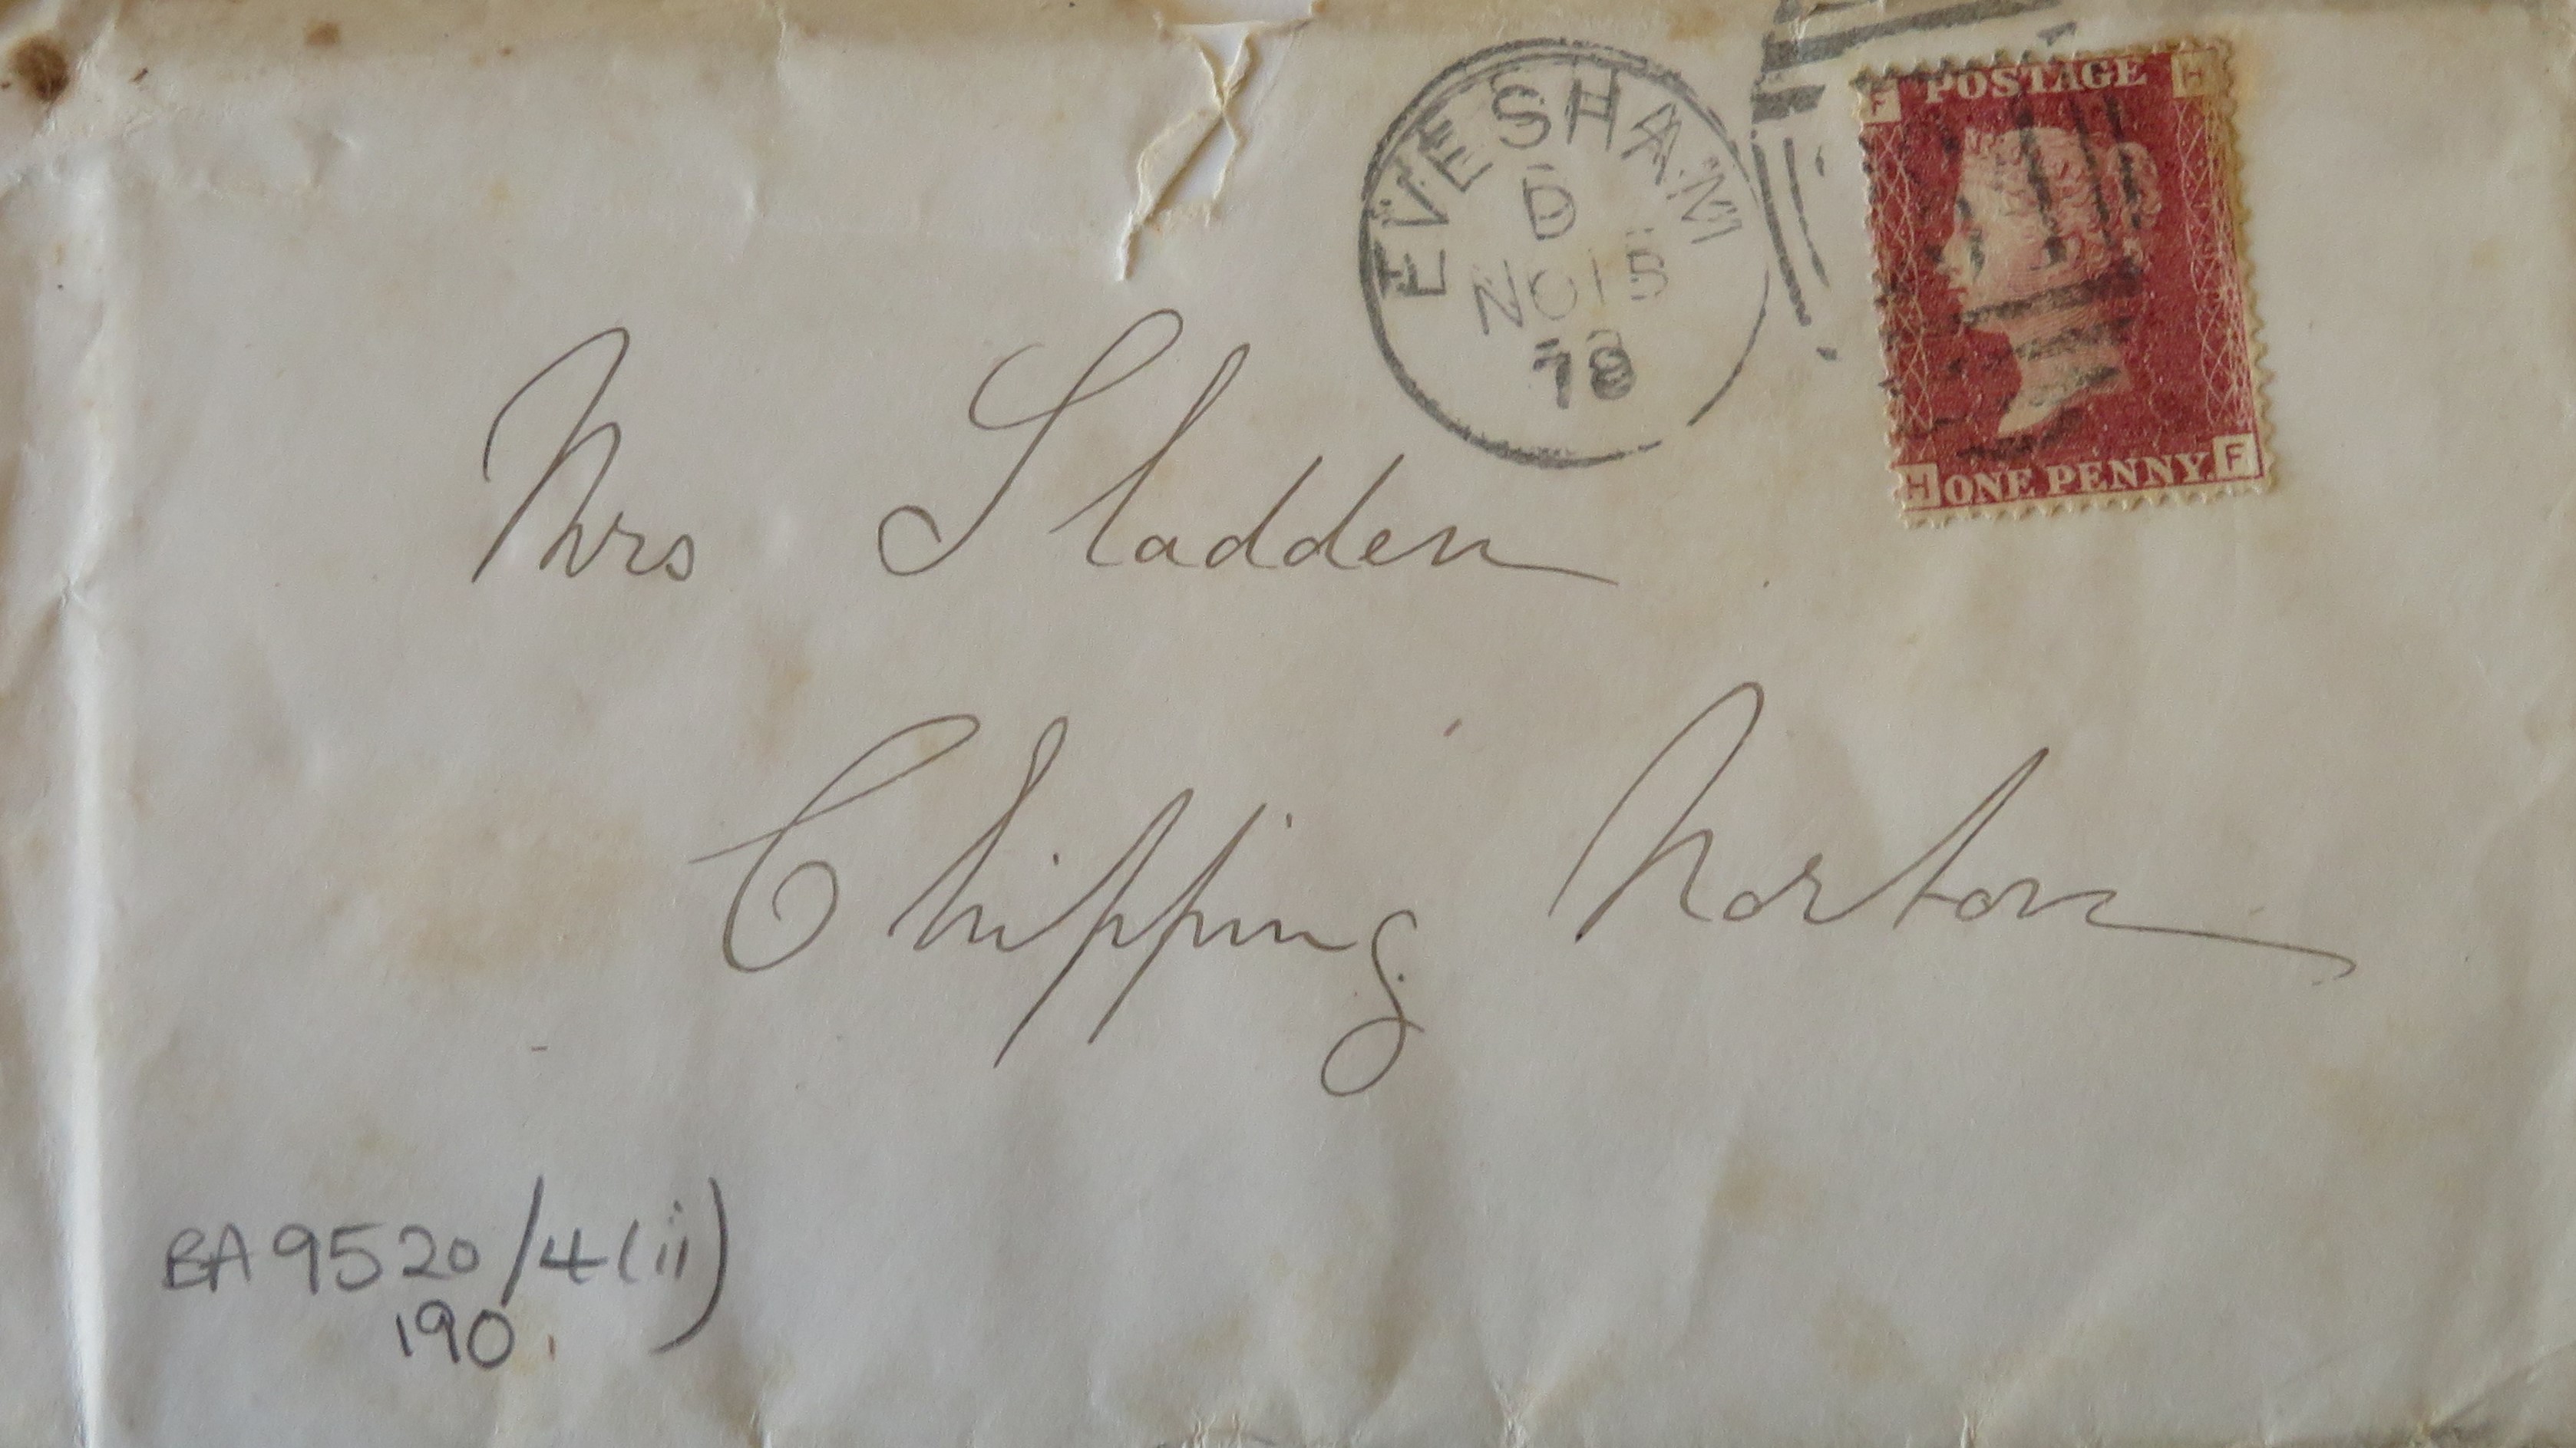 EVESHAM
D
NO 15
78
F POSTAGE H
H ONE PENNY. F
Mrs Sladden
Chipping Norton
BA9520/4(ii)
190.